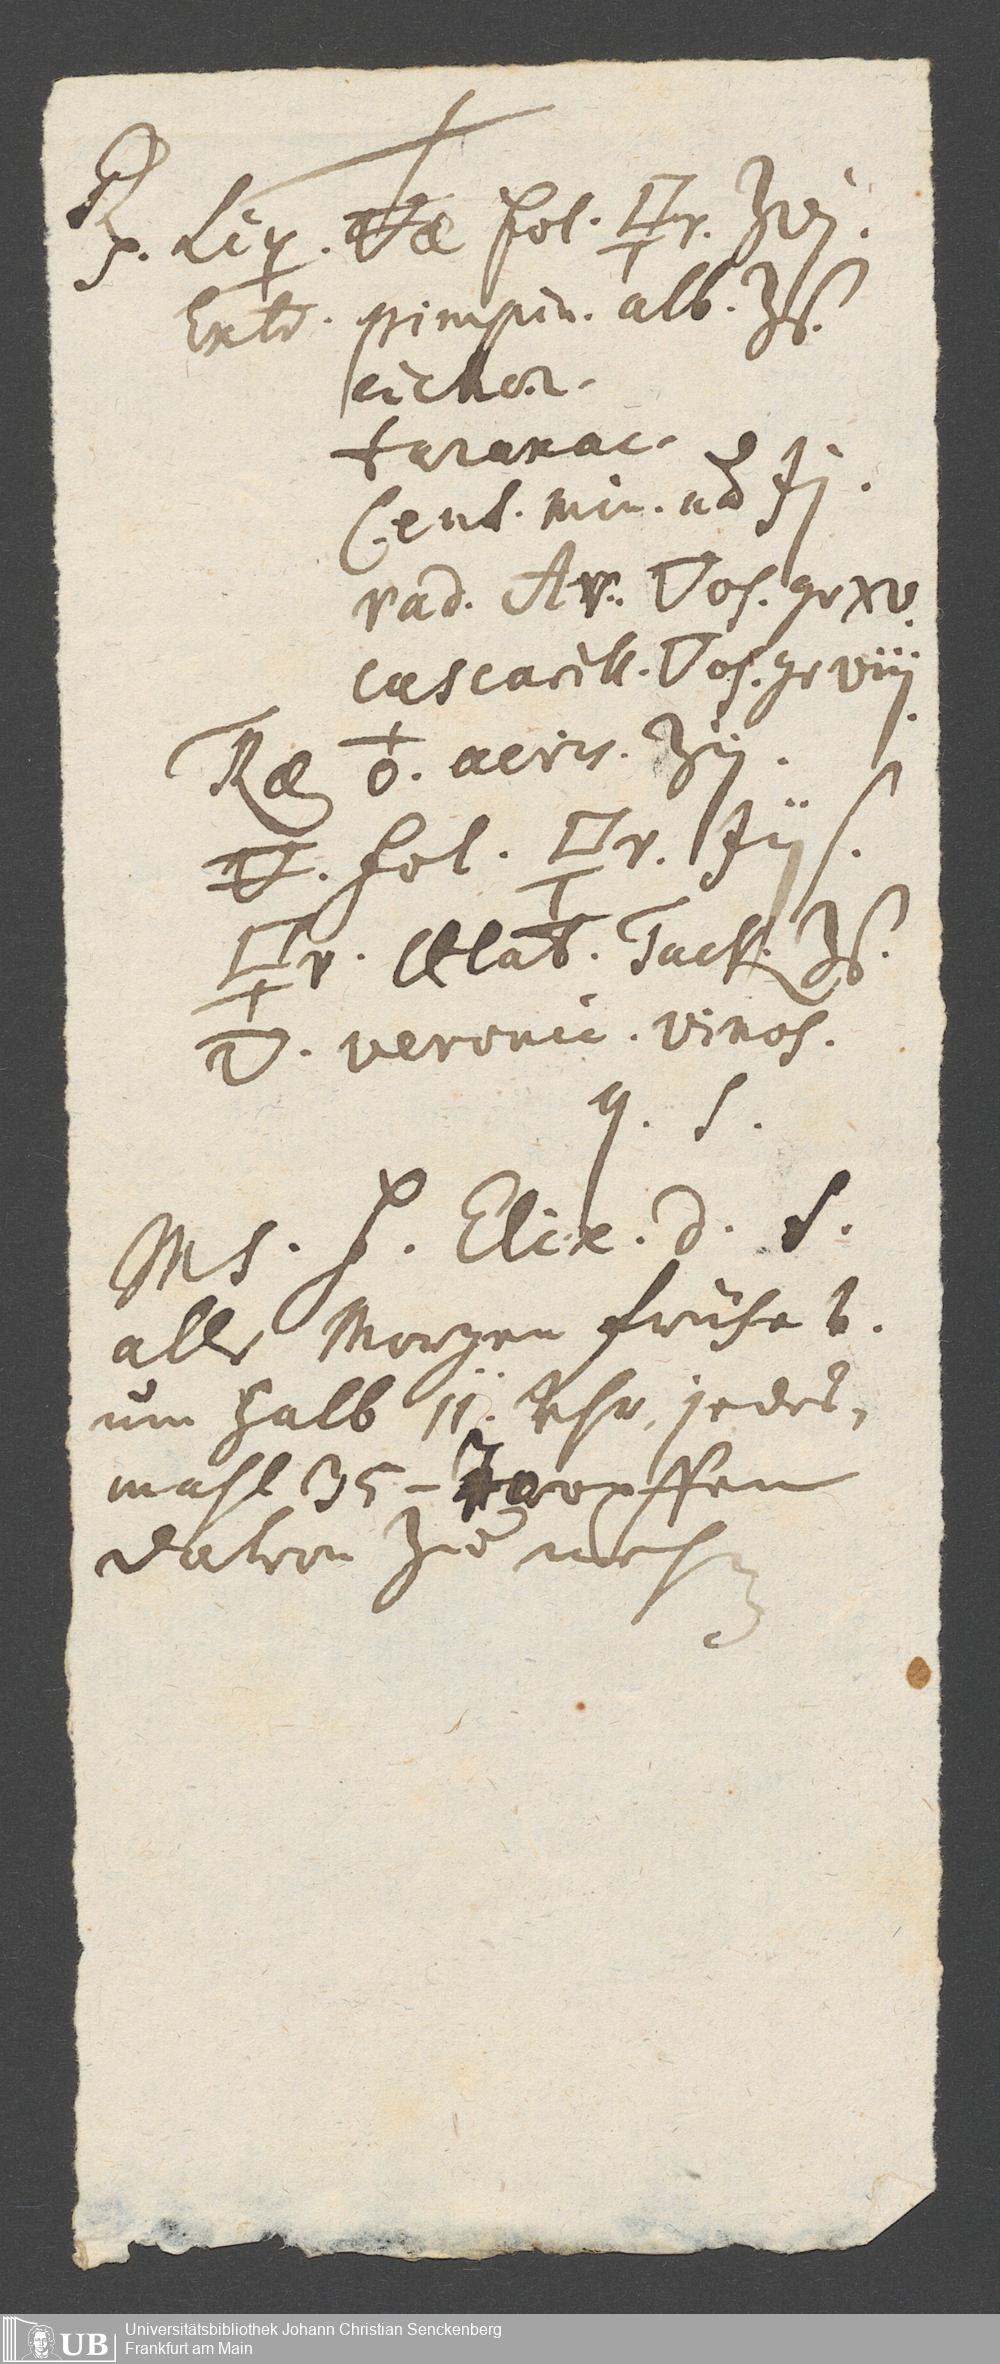 ℞
p. Liq. 🜃æ fol. 🜿r. ʒvj.
Extr. pimpin. alb. ʒß.
cichor.
taraxac.
Cent. min. aa ℈j.
rad. Ar. ▽os. gr xv.
cascarill. ▽os. gr viij.
Ræ ⊖. aeris. ʒij.
fol. 🜿r. ℈ijß.
🜿r. Tack. ʒß.
▽. veronic. vinos.
q. s.
Ms. f. Elix. d. S.
alle Morgen frühe u.
um halb 11. Uhr, jedes,
mahl 35 - Tropffen
davon zu neh
Universitätsbibliothek Johann Christian Senckenberg
Frankfurt am Main
UB